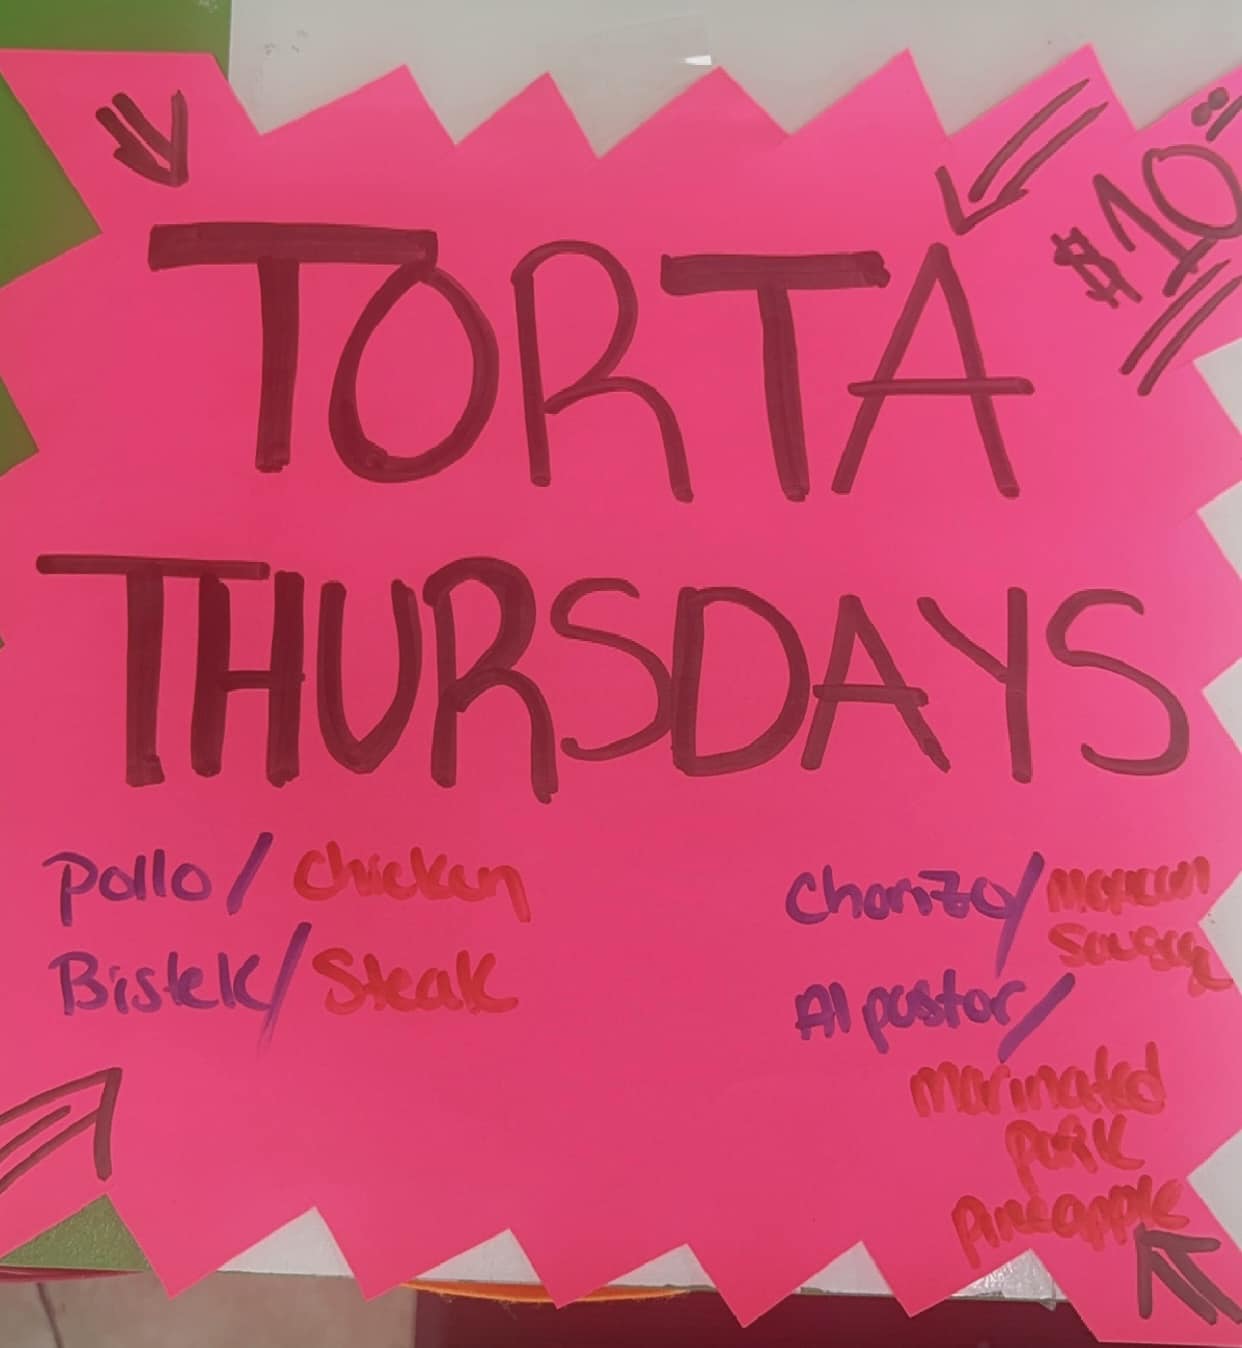 $10
TORTA
THURSDAYS
Pollo / Chicken
Bistek / Steak
Chorizo / Mexican
Sausage
Al pastor /
Marinated
pork
Pineapple